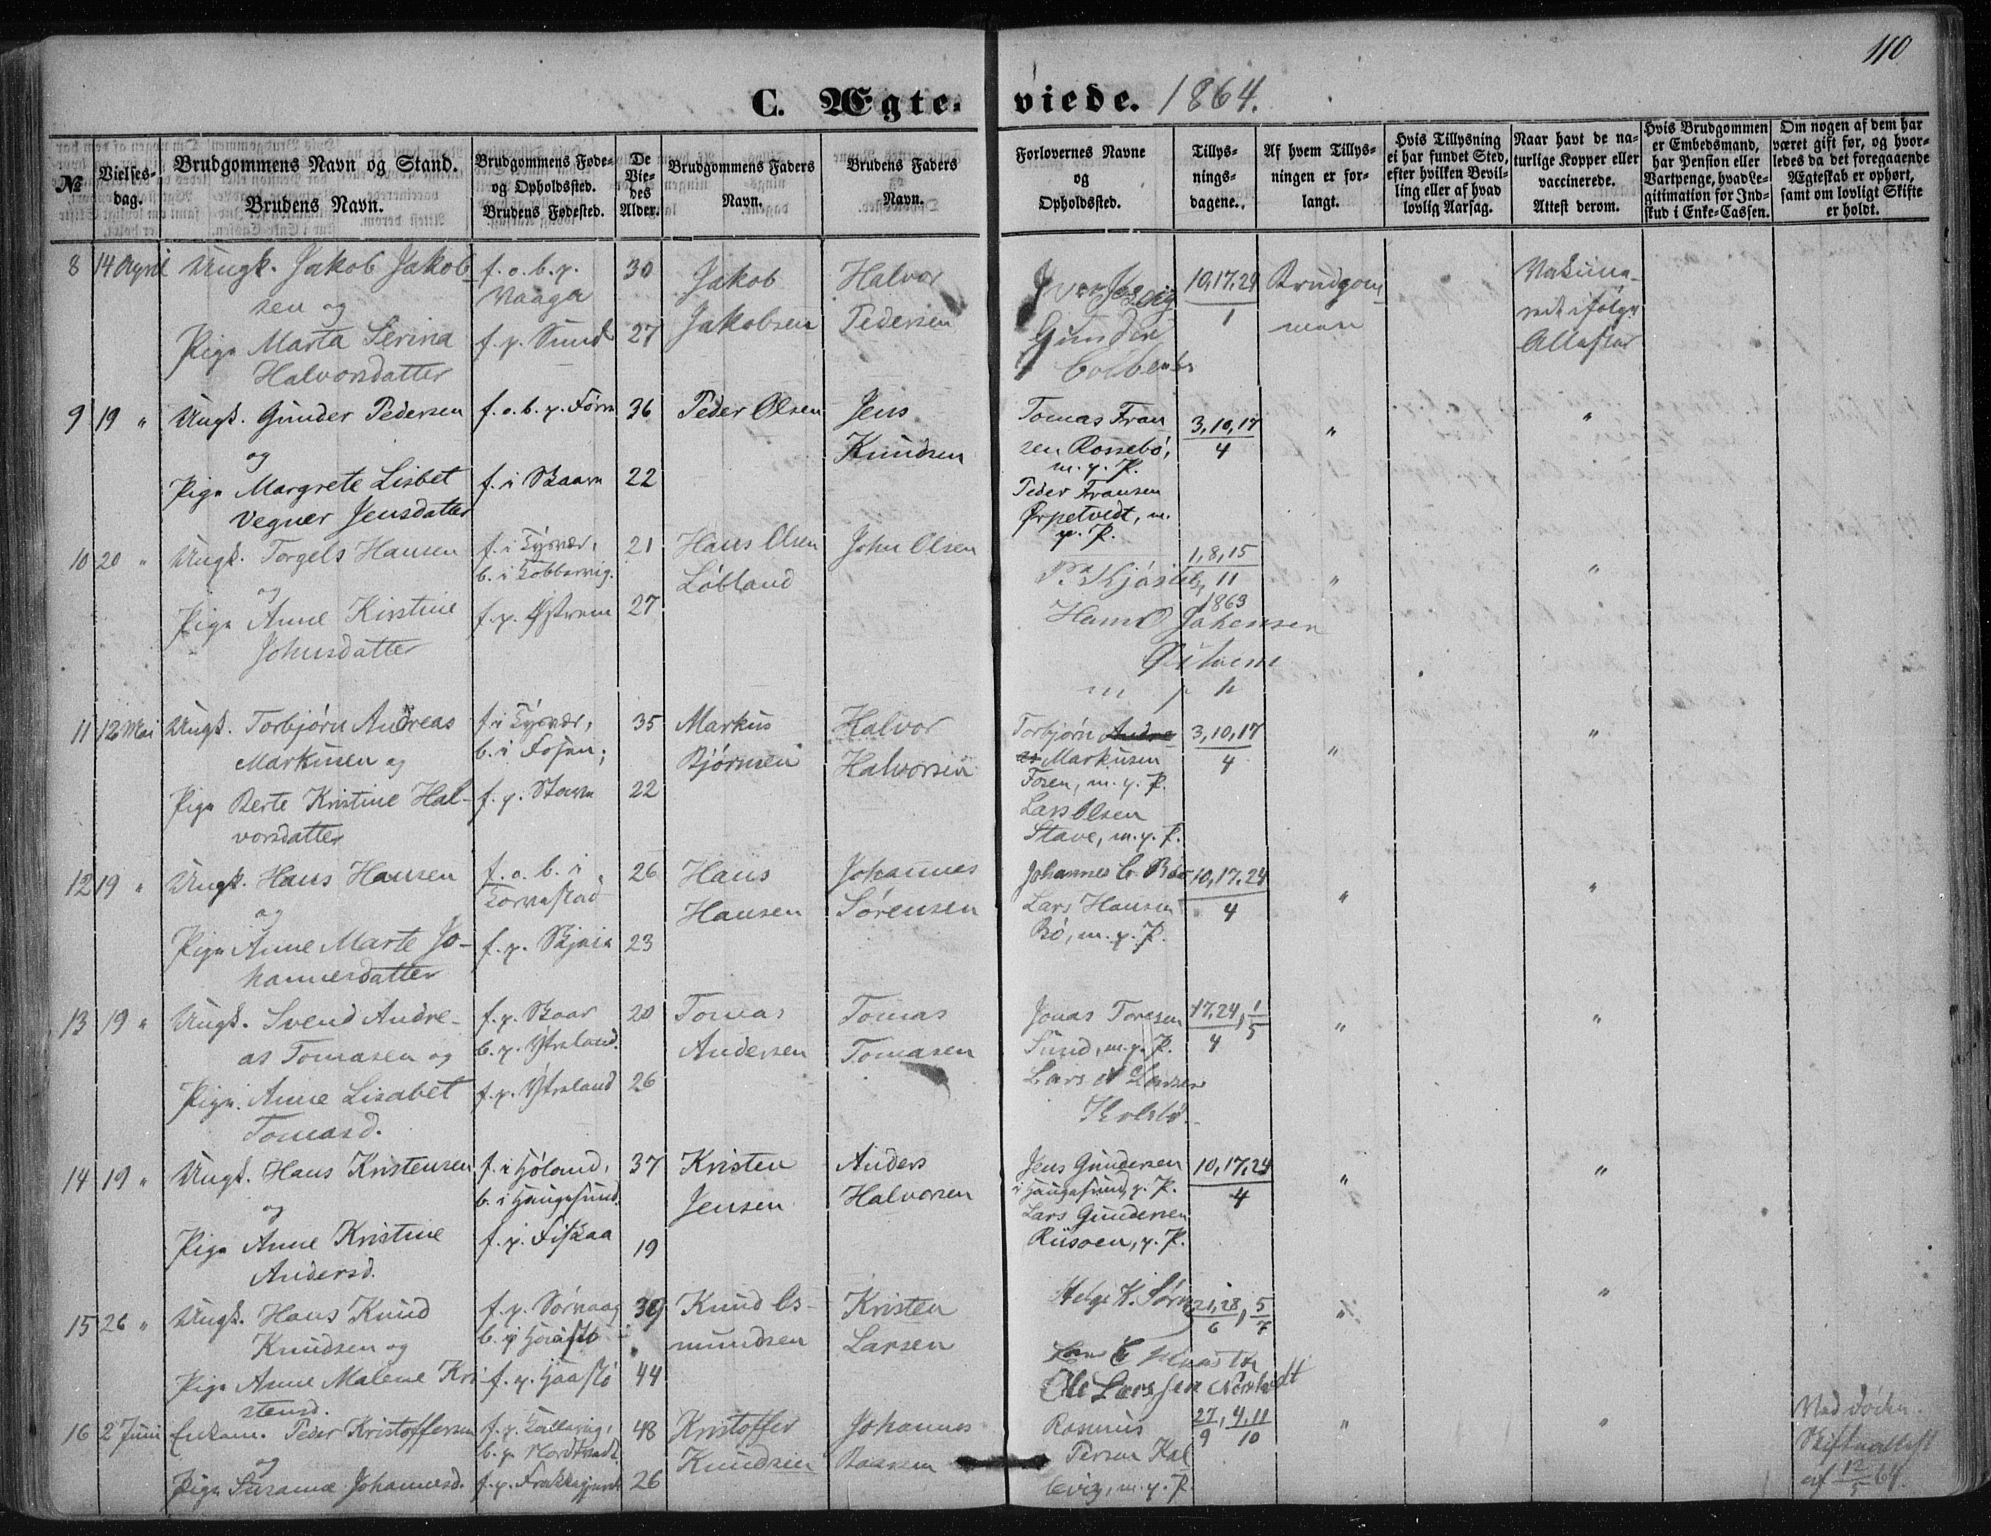 110
C. Ægteviede. 1864.
№
Vielses-
dag.
Brudgommens Navn og Stand.
Brudens Navn.
Brudgommens Føde-
og Opholdssted.
Brudens Fødested.
De
Vie-
des
Alder.
Brudgommens Faders
Navn.
Brudens Faders
Navn.
Forlovernes Navne
og
Opholdssted.
Tillys-
nings-
dagene.
Af hvem Tillys-
ningen er for-
langt.
Hvis Tillysning
ei har fundet Sted,
efter hvilken Bevil-
ling eller af hvad
lovlig Aarsag.
Naar havt de na-
turlige Kopper eller
vaccinerede.
Attest derom.
Hvis Brudgommen
er Embedsmand,
har Pension eller
Vartpenge, hvad Le-
gitimation for Ind-
skud i Enke-Cassen.
Om nogen af dem har
været gift før, og hvor-
ledes da det foregaaende
Ægteskab er ophørt,
samt om lovligt Skifte
er holdt.
8 14 April Ungk. Jakob Jakob-
sen og
Pige Marta Serina
Halvorsdatter
f. o. b. p.
Vaaga
f. p. Sund
30
27
Jakob
Jakobsen
Halvor
Pedersen
10,17,24
1
Brudgom
men
Vakcine-
rede ifølge
Attester
9 19 " Ungk. Gunder Pedersen
og
Pige Margrete Lisbet
Vegner Jensdatter
f. o. b. p.
f. i Skaare
36
22
Peder Olsen
Jens
Knudsen
Tomas Fran
zen Rossebø,
m. p. P.
Peder Fransen
Ørpetvedt, m.
p. P.
3,10,17
4
"
"
10 20 " Ungk. Torgels Hansen
og
Pige Anne Kirstine
Johnsdatter
f. i Tysvær,
b. i Kobbervig.
f. p. Østrem
21
27
Hans Olsen
Løbland
John Olsen
Johensen
m p P
1,8,15
11
1863
"
"
11 12 Mai Ungk. Torbjørn Andreas
Markusen og
Pige Berte Kristine Hal-
vorsdatter
f. i Tysvær,
b. i Fosen;
f. p. Stave
35
22
Markus
Bjørnsen
Halvor
Halvorsen
Torbjørn Andre-
as Markusen
Fosen, m. p. P.
Lars Olsen
Stave, m. p. P.
3,10,17
4
"
"
12 19 " Ungk. Hans Hansen
og
Pige Anne Marte Jo-
hannesdatter
f. o. b. i
Torvestad
f. p.
26
23
Hans
Hansen
Johannes
Sørensen
Johannes
Lars Hansen
Bø, m. p. P.
10,17,24
4
"
"
13 19 " Ungk. Svend Andre-
as Tomasen og
Pige Anne Lisabet
Tomasd.
f. p. Skaar
b. p. Ytreland.
f. p. Ytreland
20
26
Tomas
Andersen
Tomas
Tomasen
Jonas Toresen
Sund, m. p. P.
Lars
17,24, 1
4 5
"
"
14 19 " Ungk. Hans Kristensen
og
Pige Anne Kristine
Andersd.
f. i Høland,
b. i Haugesund.
f. p. Fiskaa
37
19
Kristen
Jensen
Anders
Halvorsen
Jens Gundersen
i Haugesund, p. P.
Lars Gundersen
p. P.
10,17,24
4
"
"
15 26 " Ungk. Hans Knud
Knudsen og
Pige Anne Malene Kri
stensd.
f. p. Sørvaag
b. p.
f. p.
39
44
Knud Os-
mundsen
Kristen
Larsen
Helge K.
Ole Larssen
21,28, 5
6 7
"
"
16 2 Juni Enkem. Peder Kristoffersen
og
Pige Susanne Johannesd.
f. p.
b. p.
f. p.
48
26
Kristoffer
Knudsen
Johannes
Baarsen
Rasmus
m. p. P.
27, 4,11
9 10
"
"
Ved Døden.
Skifteattest
af 12/5 64.